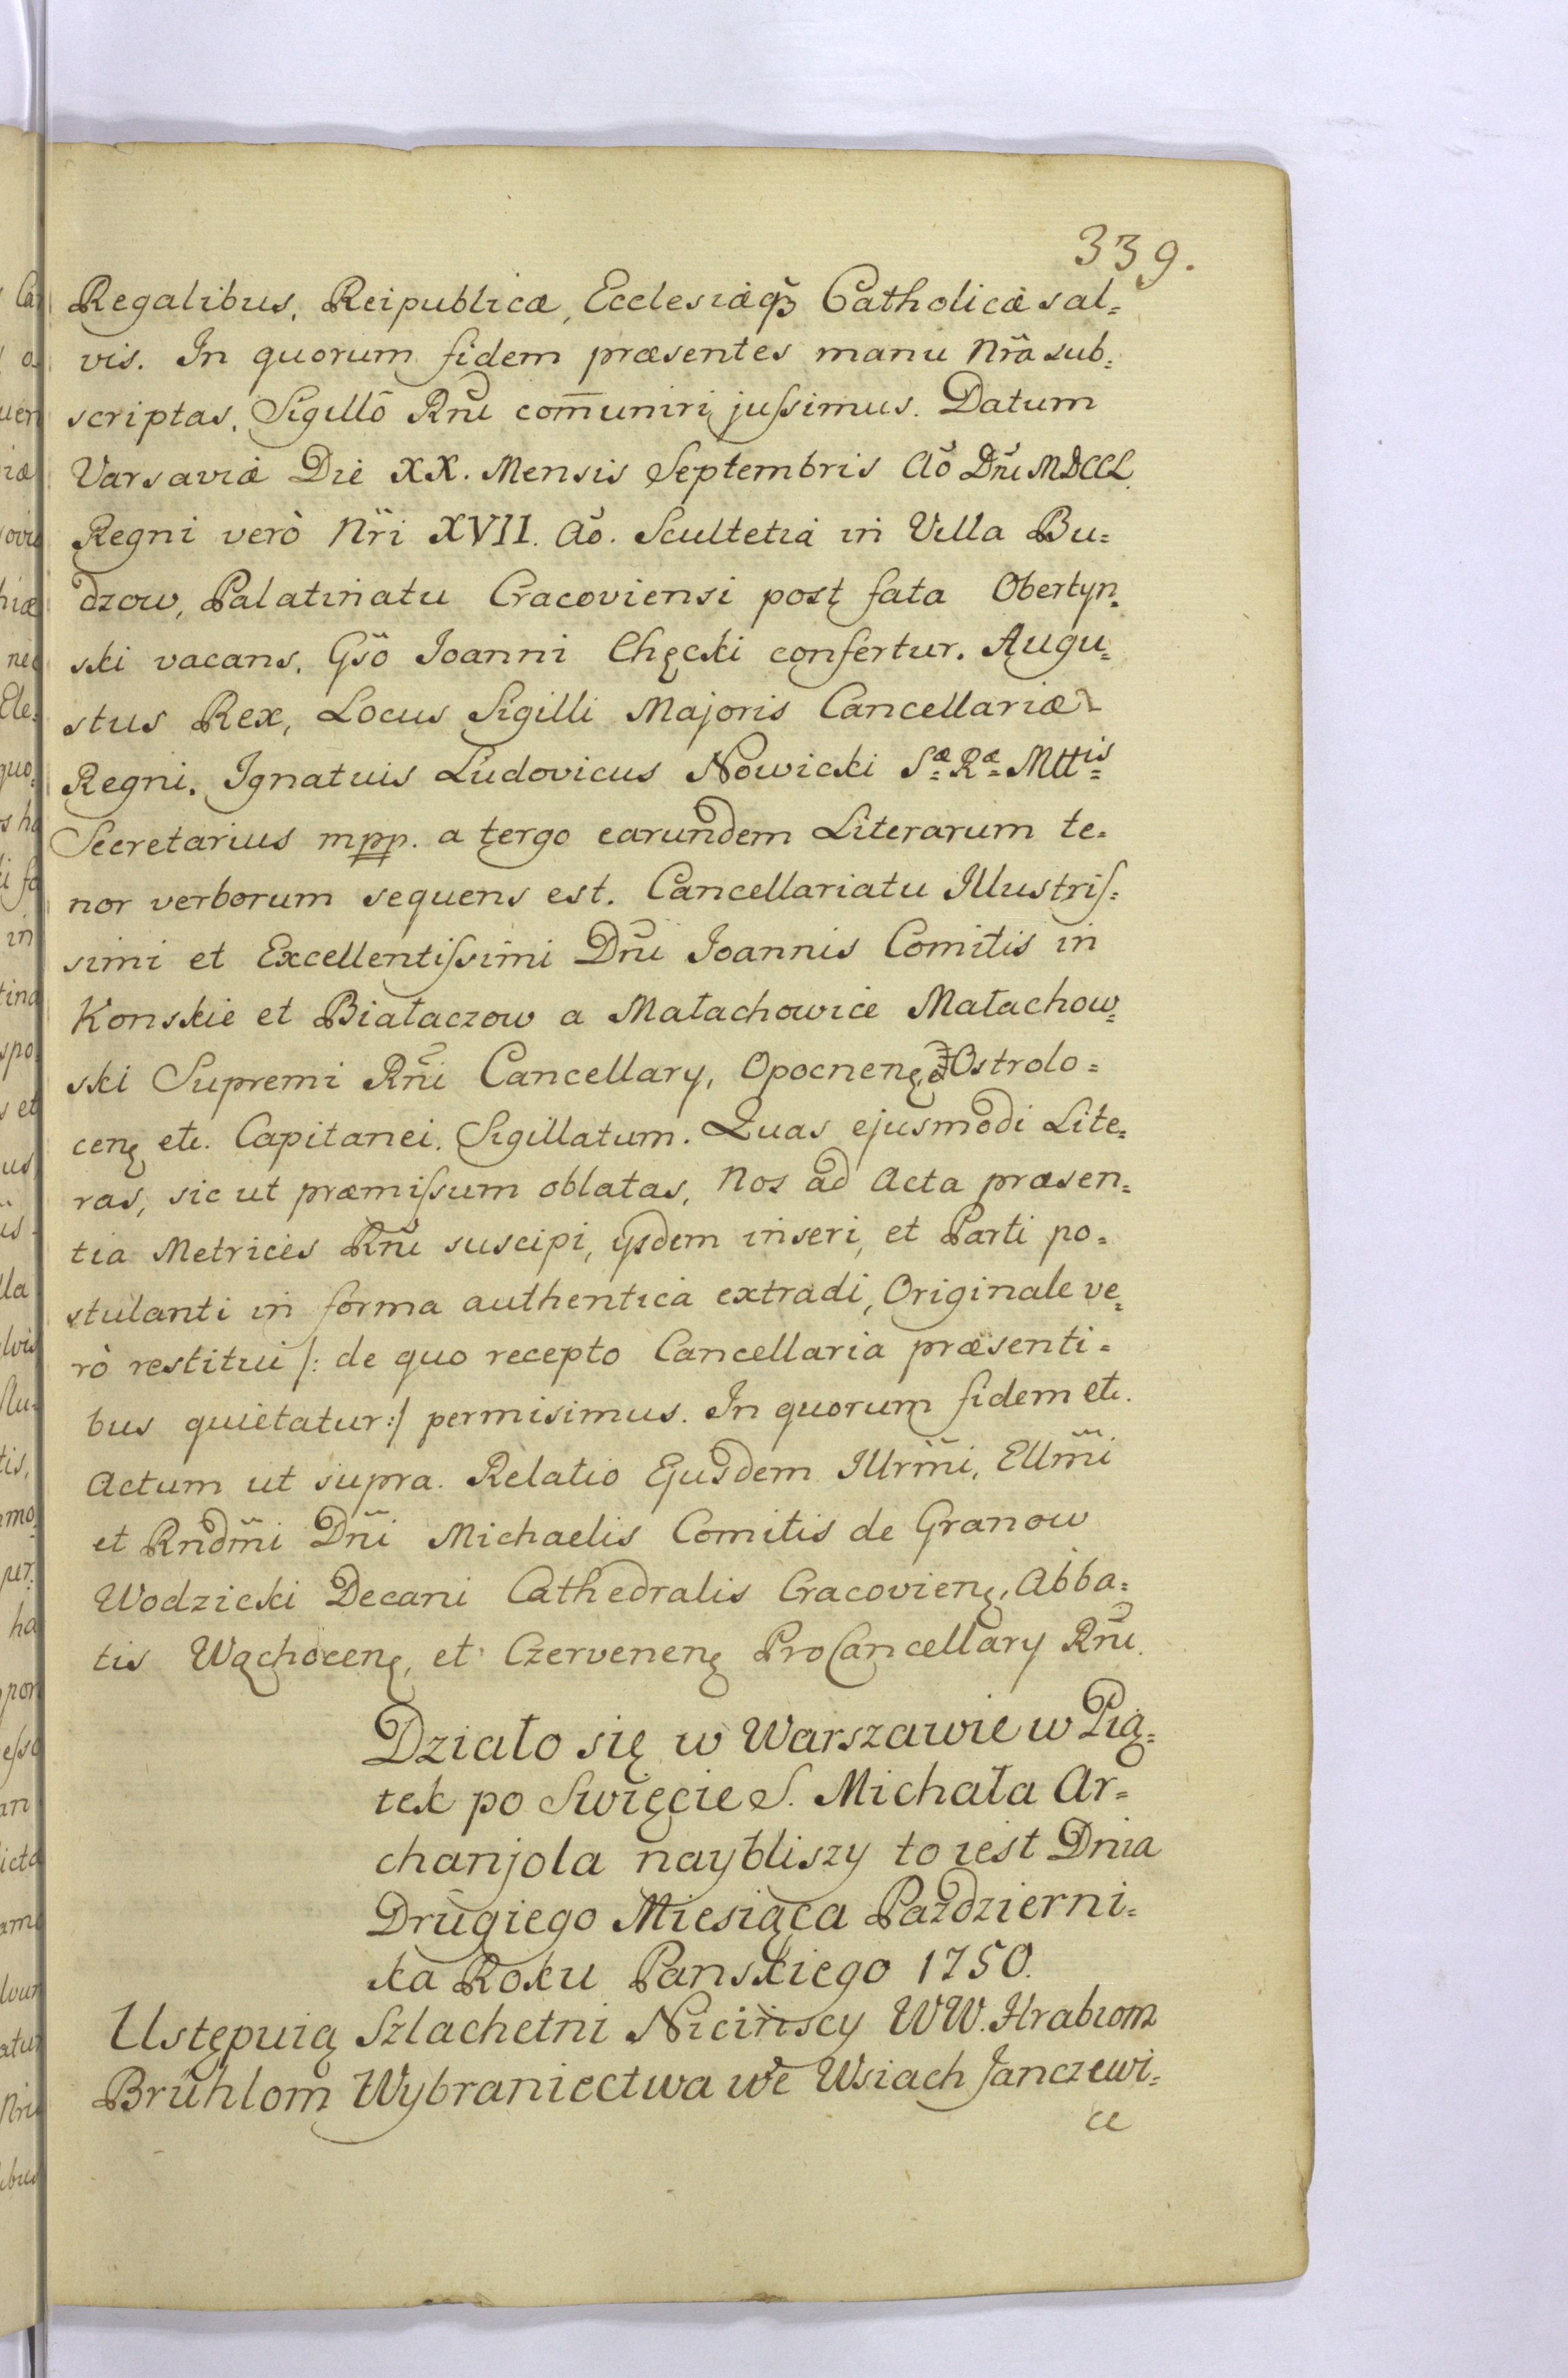 339.
Regalibus, Reipublicæ, Ecclesiæq3 Catholicæ sal=
vis. In quorum fidem præsentes manu Nrã sub=
scriptas, Sigillô Rñi com̄uniri jussimus. Datum
Varsaviæ Die XX. Mensis Septembris Aõ Dñi MDCCL
Regni verò Nr̃i XVII. Aõ. Scultetia in Villa Bu=
dzow, Palatinatu Cracoviensi post fata Obertyn=
ski vacans, Gsõ Joanni Chęcki confertur. Augu=
stus Rex, Locus Sigilli Majoris Cancellariæ
Regni. Ignatuis Ludovicus Nowicki Sæ Ræ Mttis
Secretarius mpp. a tergo earundem Literarum te=
nor verborum sequens est. Cancellariatu Illustris=
simi et Excellentissimi Dñi Joannis Comitis in
Konskie et Białaczow a Małachowice Małachow=
ski Supremi Rñi Cancellary, Opocnenȩ Ostrolo=
cenȩ etc. Capitanei. Sigillatum. Quas ejusmodi Lite=
ras, sic ut præmissum oblatas, Nos ad Acta præsen=
tia Metrices Rñi suscipi, ysdem inseri, et Parti po=
stulanti in forma authentica extradi, Originale ve=
rò restitui /: de quo recepto Cancellaria præsenti=
bus quietatur :/ permisimus. In quorum fidem etc.
Actum ut supra. Relatio Ejusdem Illrm̃i, Ellm̃i
et Rndm̃i Dñi Michaelis Comitis de Granow
Wodzicki Decani Cathedralis Cracovienȩ, Abba=
tis Wąchocenȩ, et Czervenenȩ ProCancellary Rñi.
Działo się w Warszawie w Pią=
tek po Swięcie S. Michała Ar=
chanjola naybliszy to iest Dnia
Drugiego Miesiąca Pazdzierni=
ka Roku Panskiego 1750.
Ustępuią Szlachetni Nicińscy WW. Hrabiom
Brühlom Wybraniectwa we Wsiach Janczewi=
ce